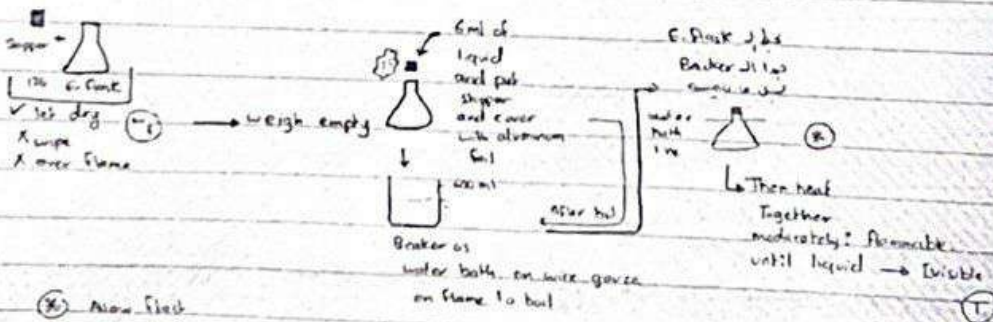 stopper
125 E. flask
✓ let dry
X wipe
X over flame
weigh empty
5 ml of
liquid
and put
stopper
and cover
with aluminum
foil
600 ml
Beaker as
water bath on wire gauze
on flame to boil
after boil
E. flask
Beaker
water
bath
Then heat
Together
moderately: flammable
until liquid → Invisible
Allow flask